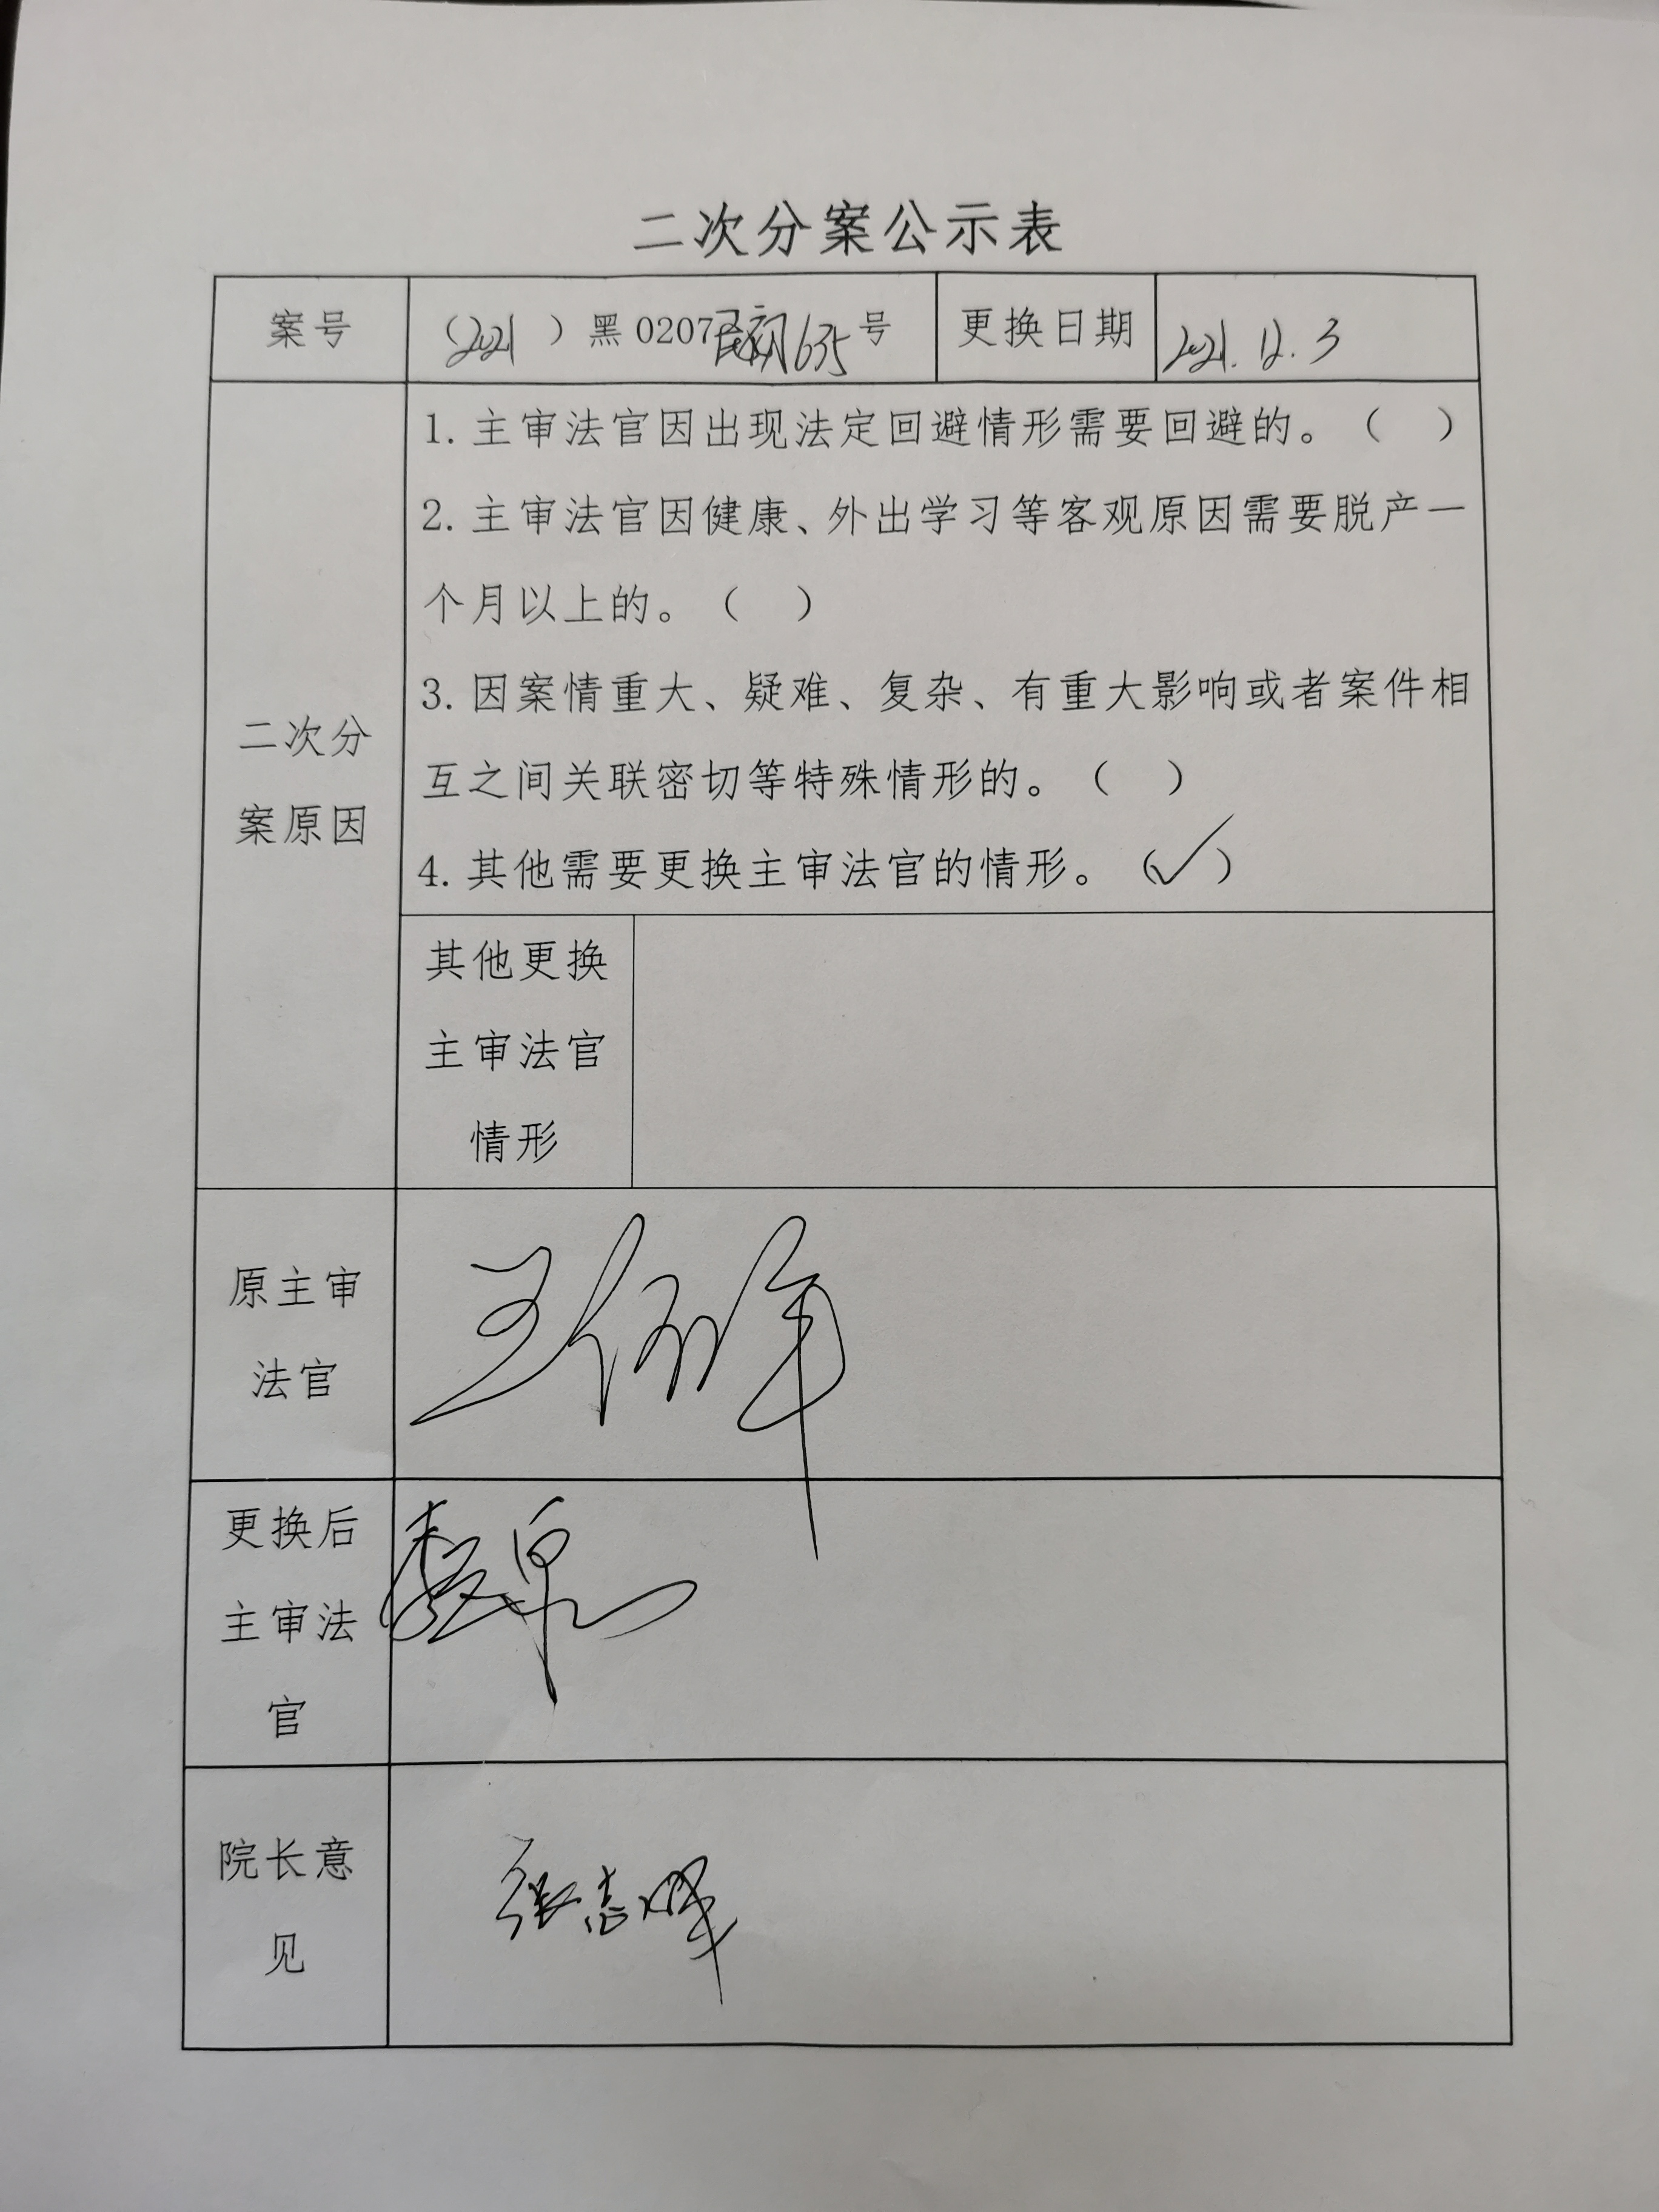 二次分案公示表
案号 (2021)黑0207民初635号 更换日期 2021.12.3
二次分
案原因
1.主审法官因出现法定回避情形需要回避的。( )
2.主审法官因健康、外出学习等客观原因需要脱产一
个月以上的。( )
3.因案情重大、疑难、复杂、有重大影响或者案件相
互之间关联密切等特殊情形的。( )
4.其他需要更换主审法官的情形。(✓)
其他更换
主审法官
情形
原主审
法官
更换后
主审法
官
院长意
见
张志辉